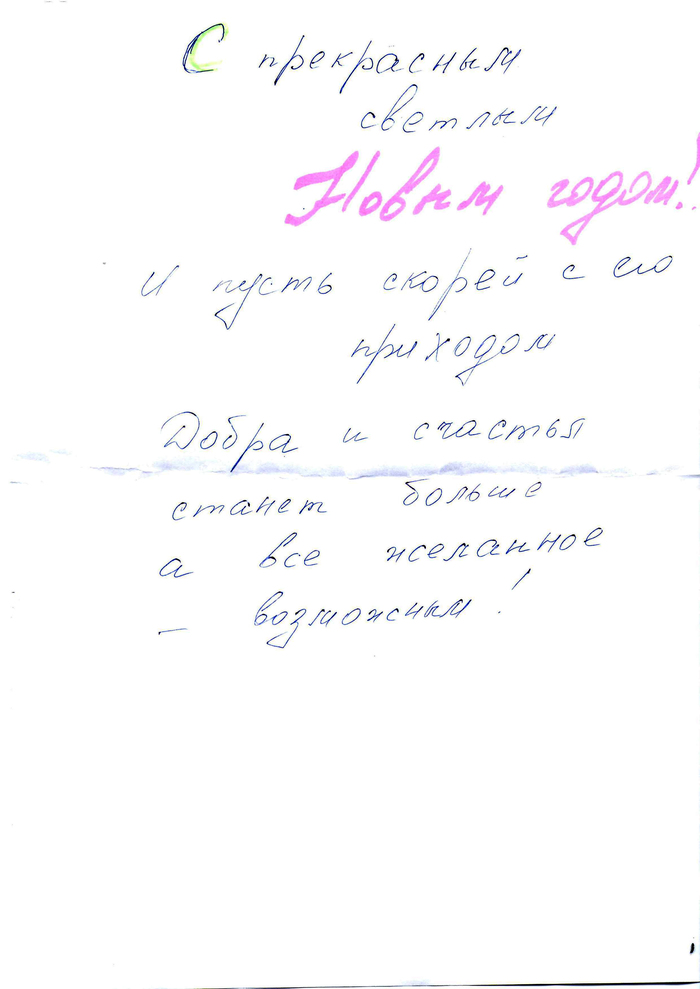 С прекрасным
светлым
Новым годом!
И пусть скорей с его
приходом
Добра и счастья
станет больше
а все желанное
– возможным!